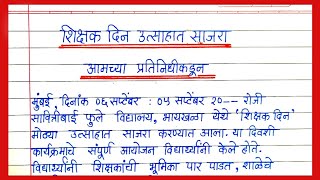 शिक्षक दिन उत्साहात साजरा
आमच्या प्रतिनिधीकडून
मुंबई, दिनांक ०६ सप्टेंबर : ०५ सप्टेंबर २०-- रोजी
सावित्रीबाई फुले विद्यालय, भायखळा येथे 'शिक्षक दिन'
मोठ्या उत्साहात साजरा करण्यात आला. या दिवशी
कार्यक्रमाचे संपूर्ण आयोजन विद्यार्थ्यांनी केले होते.
विद्यार्थ्यांनी शिक्षकांची भूमिका पार पाडत, शाळेचे